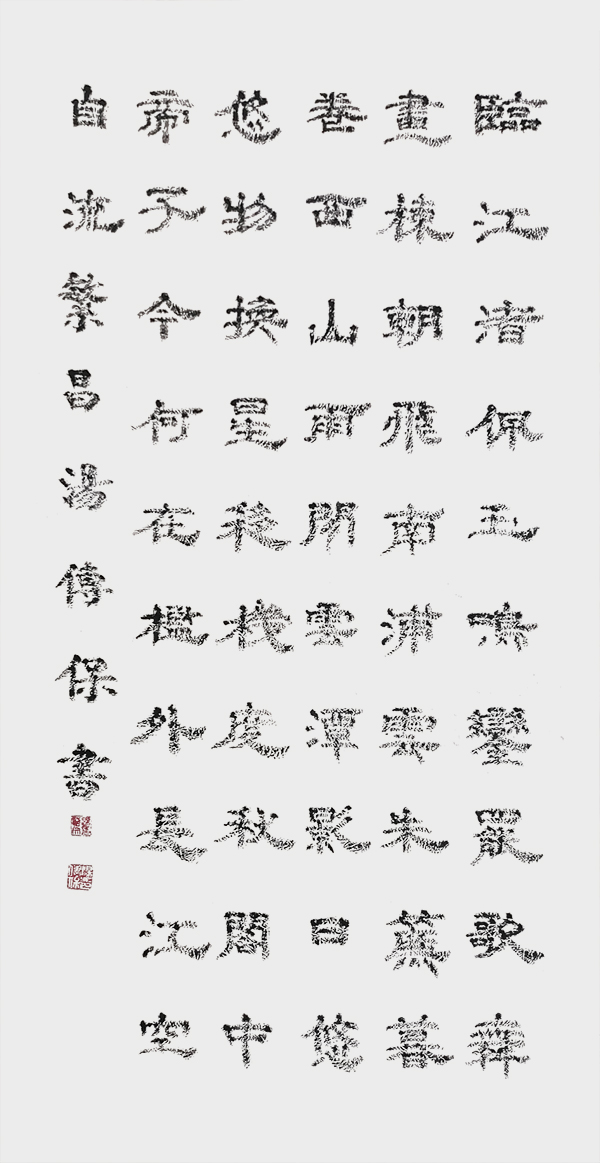 臨江渚佩玉鳴鑾罷歌舞
畫棟朝飛南浦雲朱簾暮
卷西山雨閒雲潭影日悠
悠物換星移機度秋閣中
帝子今何在檻外長江空
自流繁昌湯傳保書